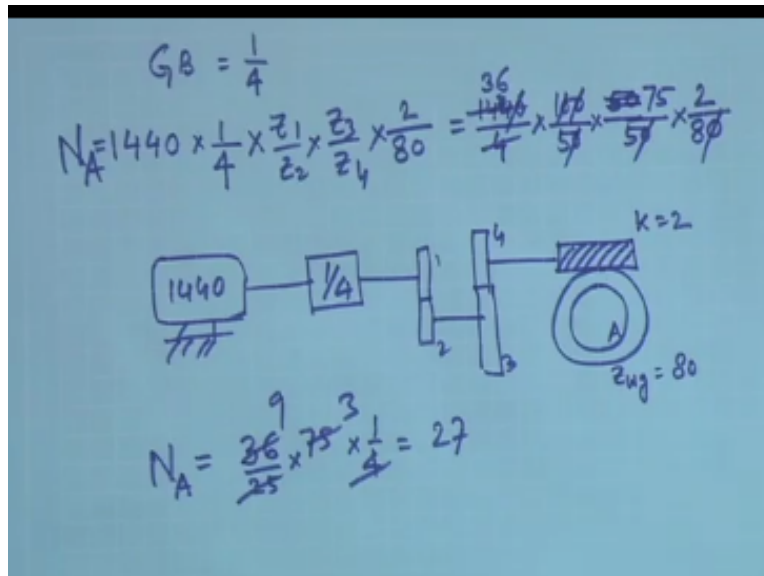 GB = 1/4
N_A = 1440 × 1/4 × Z1/Z2 × Z3/Z4 × 2/80 = 36 1440/4 × 100/50 × 50 75/50 × 2/80
K=2
1440
1/4
1
2
3
4
A
Z_wg = 80
N_A = 36/25 9 × 75 3 × 1/4 = 27